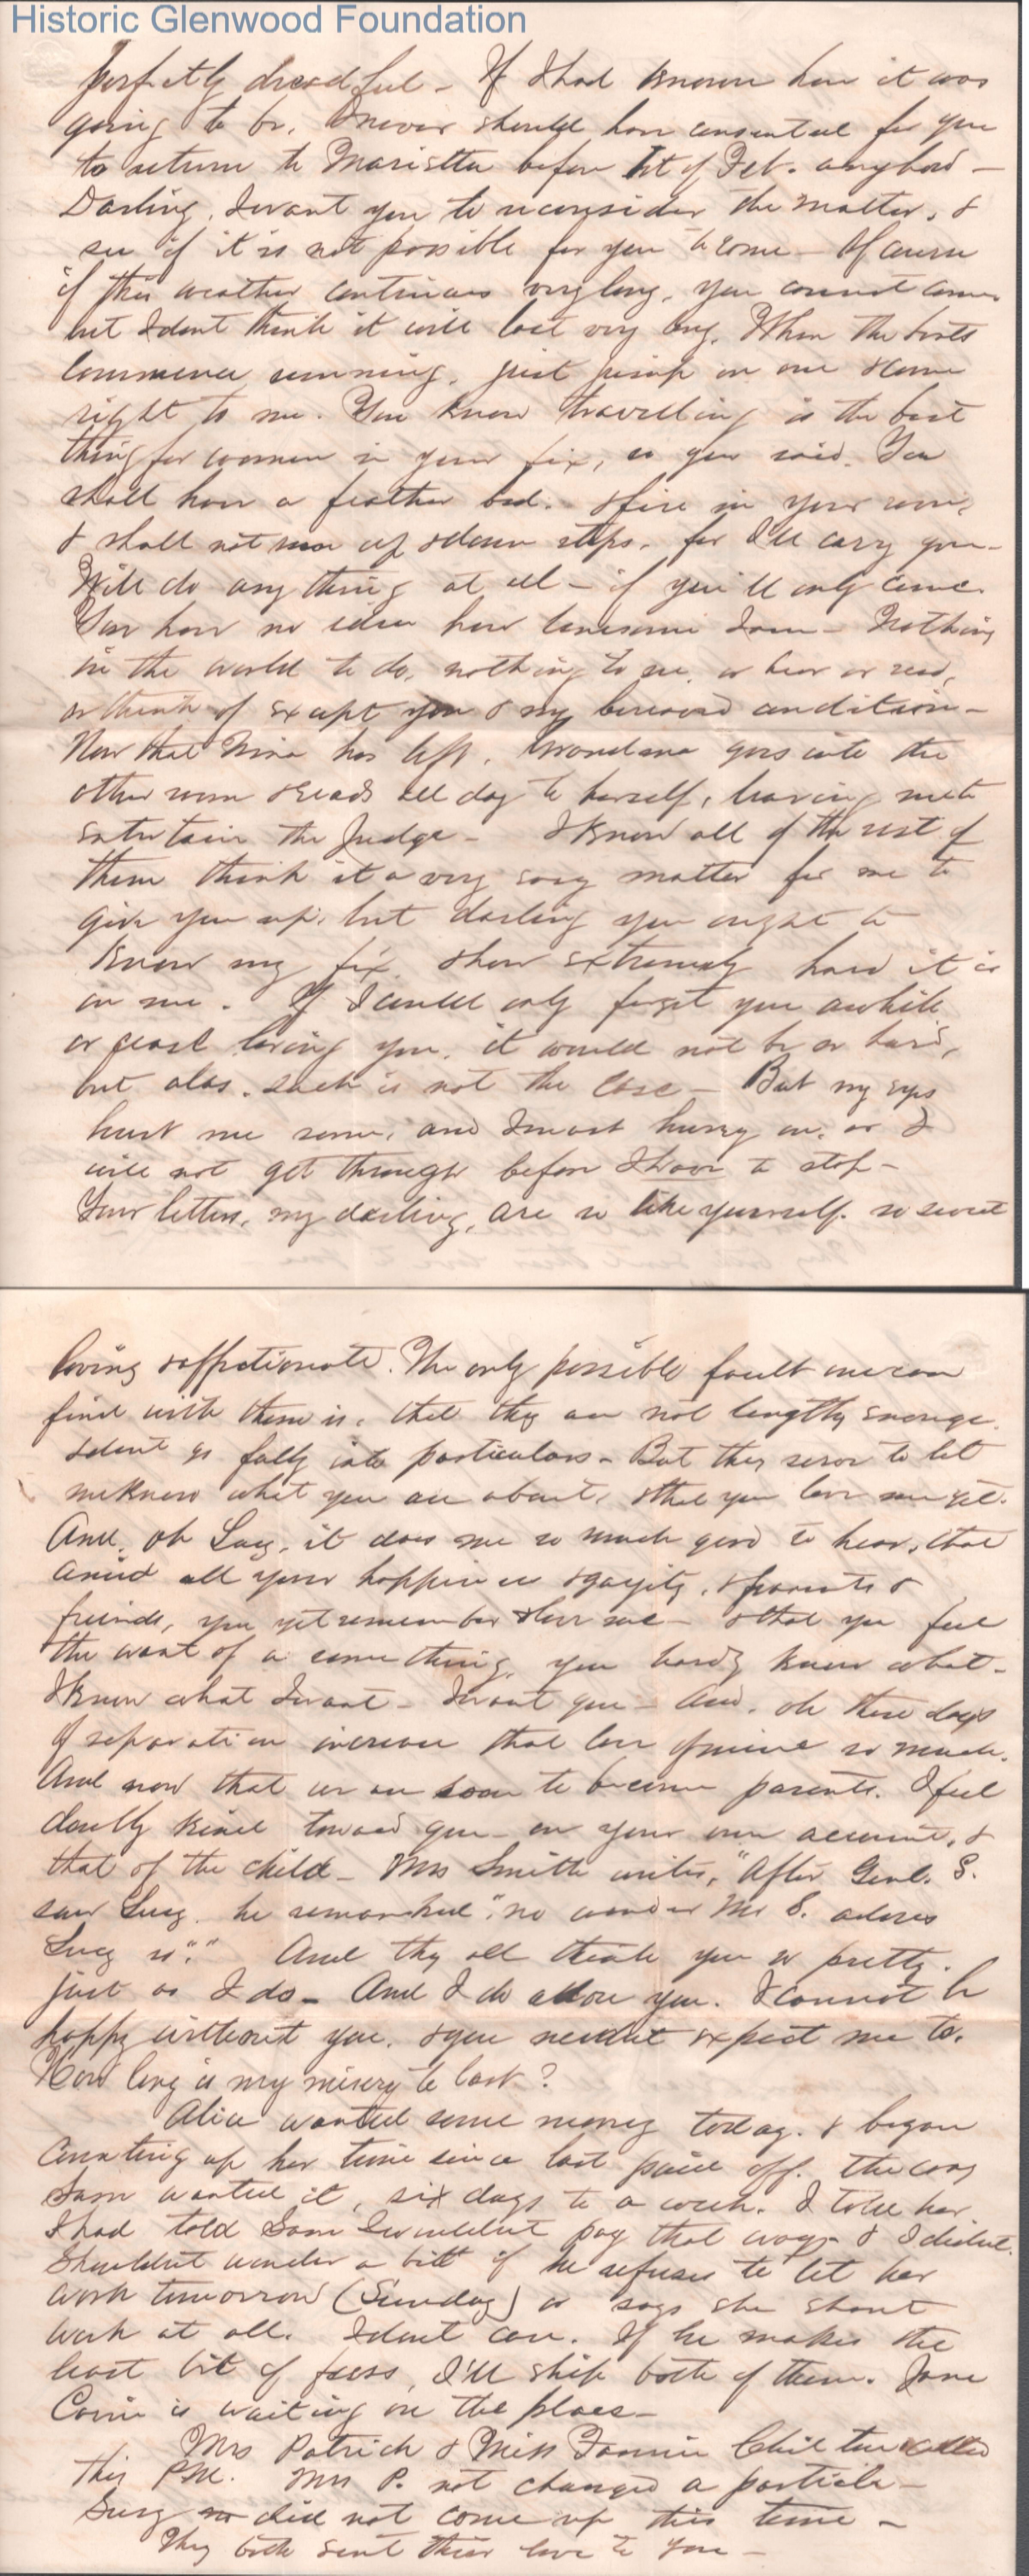 Historic Glenwood Foundation
perfectly dreadful - If I had known how it was
going to be, I never should have consented for you
to return to Marietta before 1st of Feb. anyhow -
Darling, I want you to reconsider the matter, &
see if it is not possible for you to come - Of course
if this weather continues very long, you cannot come
but I dont think it will last very long. When the boats
commence running, just jump on one & come
right to me. You know travelling is the best
thing for women in your fix, as you said. You
shall have a feather bed, & fire in your room,
& shall not move up & down steps, for I'll carry you -
Will do any thing at all - if you'll only come.
You have no idea how lonesome I am - Nothing
in the world to do, nothing to see, or hear or read,
or think of except you & my bereaved condition -
Now that Nina has left, Grandma goes into the
other room & reads all day to herself, leaving me to
entertain the Judge - I know all of the rest of
them think it a very easy matter for me to
give you up, but darling you ought to
know my fix, & how extremely hard it is
on me. If I could only forget you awhile
or cease loving you, it would not be so hard,
but alas, such is not the case - But my eyes
hurt me some, and I must hurry on, or I
will not get through before I have to stop -
Your letters, my darling, are so like yourself, so sweet
loving & affectionate. The only possible fault one can
find with them is, that they are not lengthy enough
& dont go fully into particulars - But they serve to let
me know what you are about, & that you love me yet.
And, oh Lucy, it does me so much good to hear, that
amid all your happiness & gayety, & parents &
friends, you yet remember & love me - & that you feel
the want of a something, you hardly know what -
I know what I want - I want you - And, oh these days
of separation increase that love of mine so much.
And now that we are soon to become parents, I feel
doubly kind toward you - on your own account, &
that of the child - Mrs Smith writes, "After Genl. S.
saw Lucy, he remarked, "no wonder Mr S. adores
Lucy so"." And they all think you so pretty,
just as I do - And I do adore you. I cannot be
happy without you, & you neednt expect me to.
How long is my misery to last?
Alice wanted some money today, & began
counting up her time since last paid off, the way
Sam wanted it, six days to a week. I told her
I had told Sam I wouldnt pay that way - & I didnt.
Shouldnt wonder a bit if he refuses to let her
work tomorrow (Sunday) or says she shant
work at all. I dont care. If he makes the
least bit of fuss, I'll ship both of them. Jane
is waiting on the place -
Mrs Patrick & Miss Fannie called
this P.M. Mrs P. not changed a particle -
did not come up this time -
They both sent their love to you -